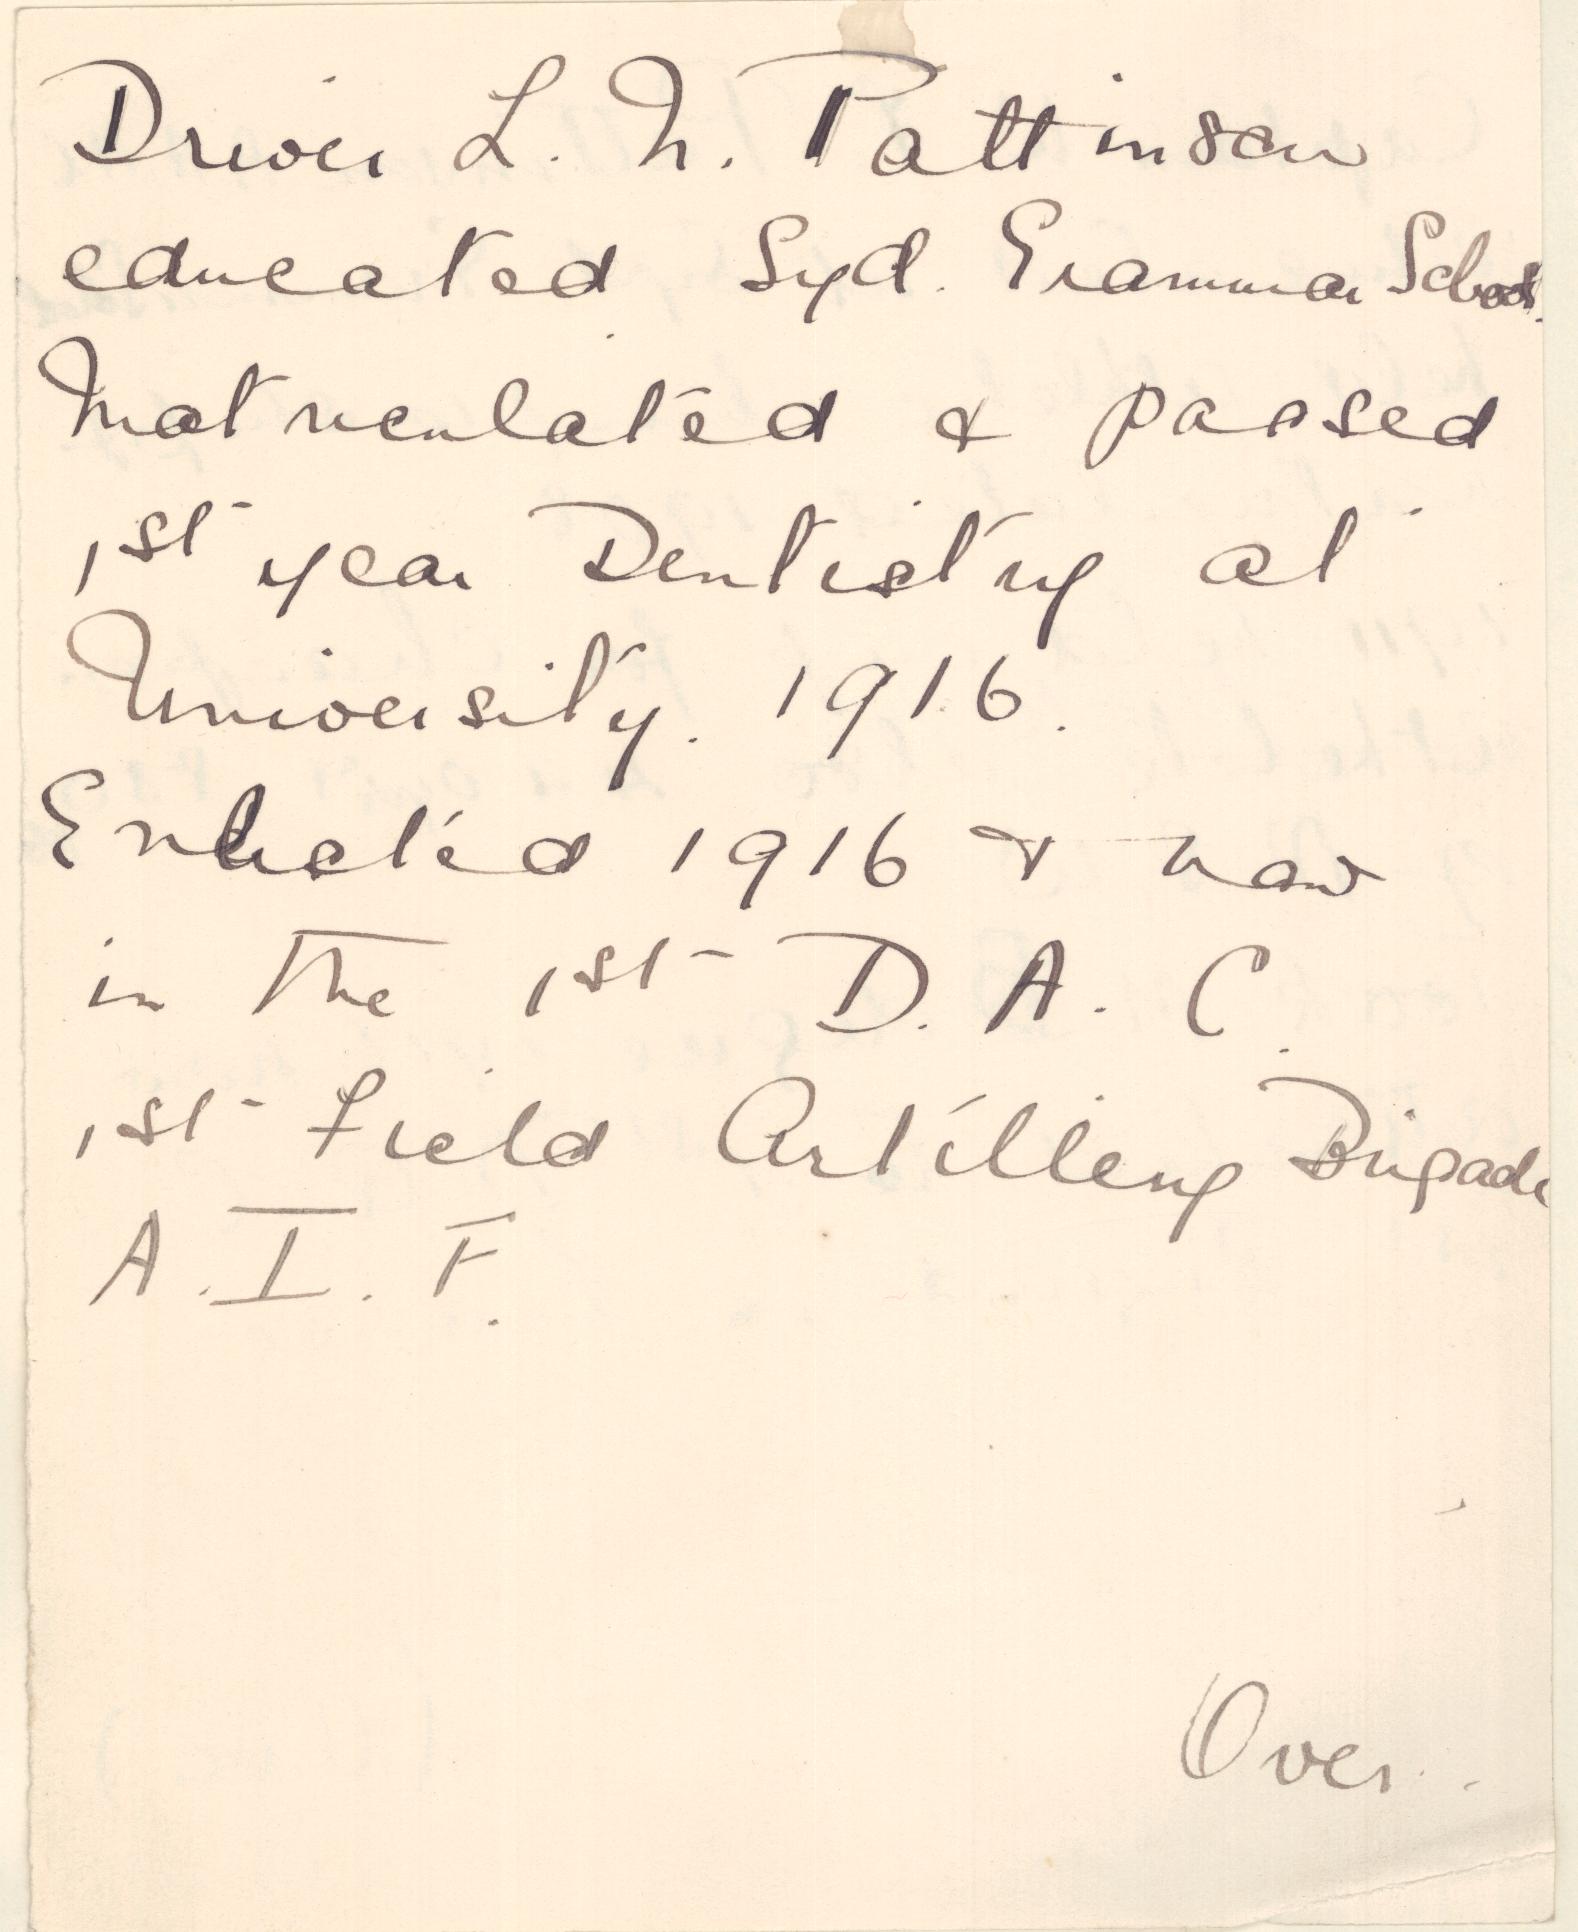 Driver L. N. Pattinson
educated Syd. Grammar School.
Matriculated & passed
1st year Dentistry at
University. 1916.
Enlisted 1916 & now
in the 1st D. A. C.
1st Field Artillery Brigade
A. I. F.
Over.